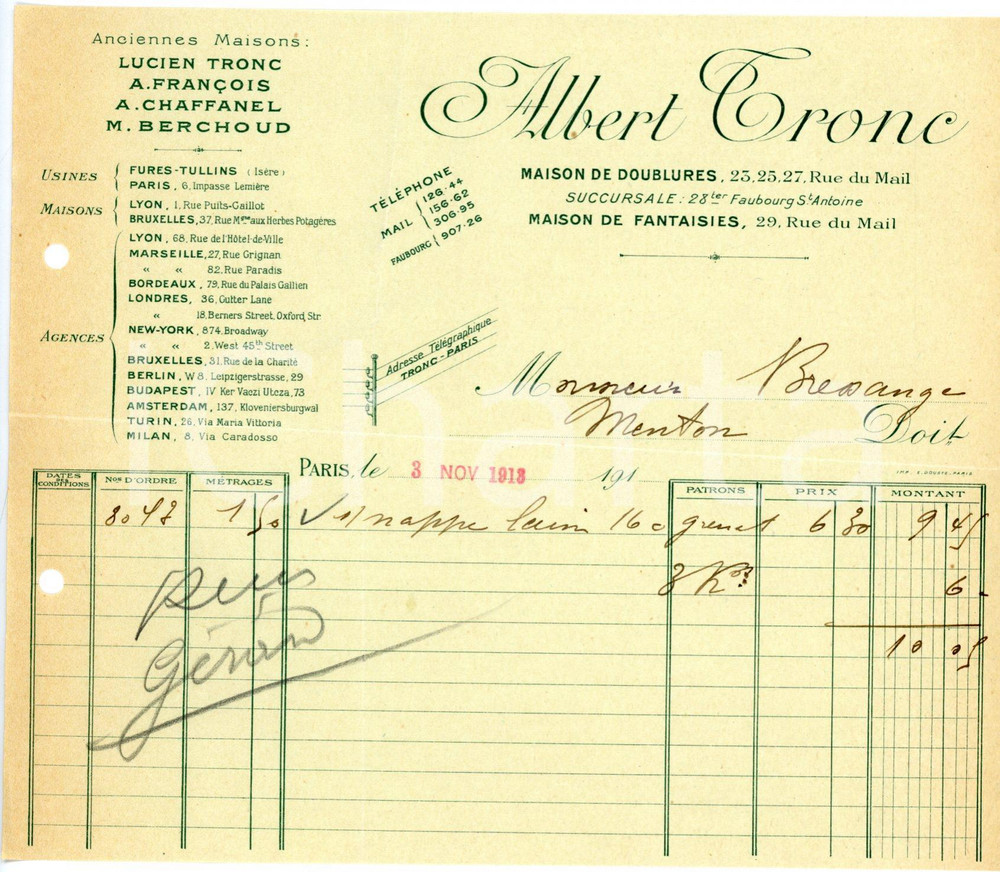 Anciennes Maisons:
LUCIEN TRONC
A. FRANÇOIS
A. CHAFFANEL
M. BERCHOUD
USINES
FURES-TULLINS (Isère)
PARIS, 6, Impasse Lemière
MAISONS
LYON, 1, Rue Puits-Gaillot
BRUXELLES, 37, Rue Mgne aux Herbes Potagères
AGENCES
LYON, 68, Rue de l'Hôtel-de-Ville
MARSEILLE, 27, Rue Grignan
« « 82, Rue Paradis
BORDEAUX, 79, Rue du Palais Gallien
LONDRES, 36, Gutter Lane
« 18, Berners Street, Oxford, Str
NEW-YORK, 874, Broadway
« « 2, West 45th Street
BRUXELLES, 31, Rue de la Charité
BERLIN, W8, Leipzigerstrasse, 29
BUDAPEST, IV Ker Vaczi Utcza, 73
AMSTERDAM, 137, Kloveniersburgwal
TURIN, 26, Via Maria Vittoria
MILAN, 8, Via Caradosso
Albert Tronc
MAISON DE DOUBLURES, 23, 25, 27, Rue du Mail
SUCCURSALE: 28ter Faubourg St Antoine
MAISON DE FANTAISIES, 29, Rue du Mail
TÉLÉPHONE
MAIL
126.44
156.62
306.95
FAUBOURG 907.26
Adresse Télégraphique
TRONC-PARIS
Monsieur Bressange
Menton Doit
PARIS, le 3 NOV 1913 191
IMP. E. DOUSTE-PARIS
DATES DES CONDITIONS
Nos D'ORDRE
MÉTRAGES
PATRONS
PRIX
MONTANT
8048 1 50 nappe 160 grenat 6 30 9 45
6
10 05
Gérard